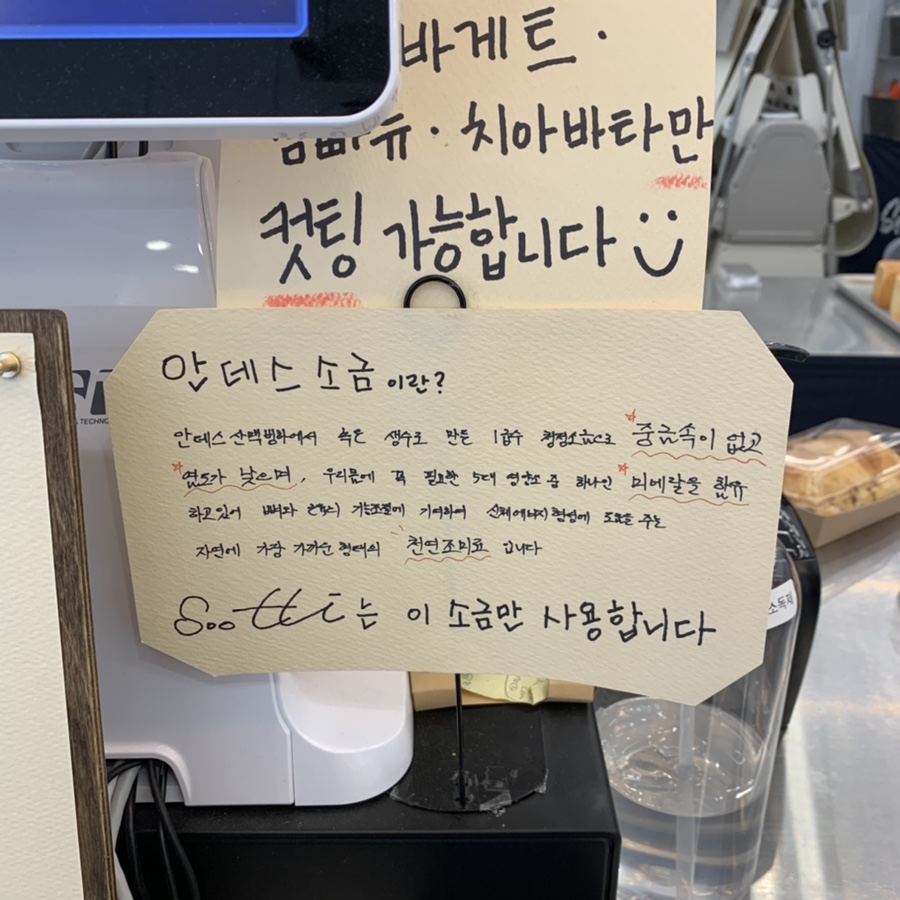 바게트.
깜빠뉴. 치아바타만
컷팅 가능합니다
안데스소금이란?
안데스 산맥빙하에서 녹은 생수로 만든 1급수 청정소금으로 중금속이 없고
염도가 낮으며, 우리몸에 꼭 필요한 5대 영양소 중 하나인 미네랄을 함유
하고있어 뼈와 근육의 기능조절에 기여하여 신체에너지형성에 도움을 주는
자연에 가장 가까운 형태의 천연조미료 입니다
Sootti는 이 소금만 사용합니다
소독제